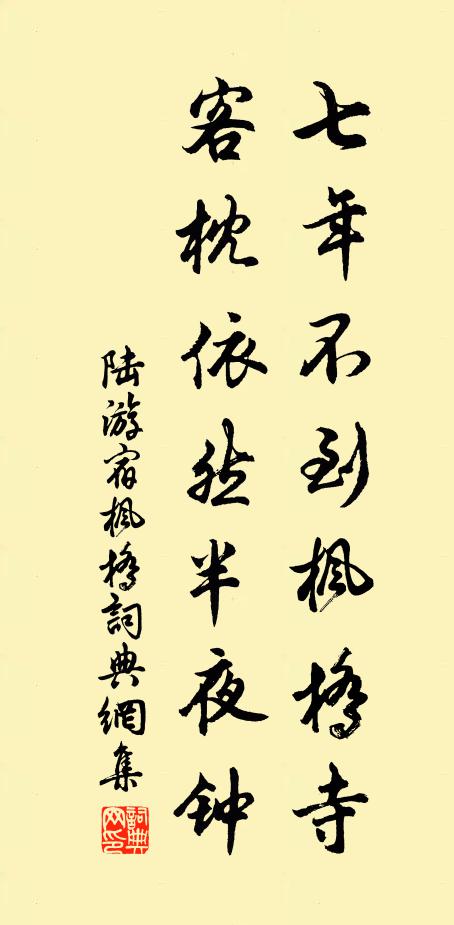 七年不到枫橋寺
客枕依然半夜钟
陆游宿枫橋詞典網集
詞典网印